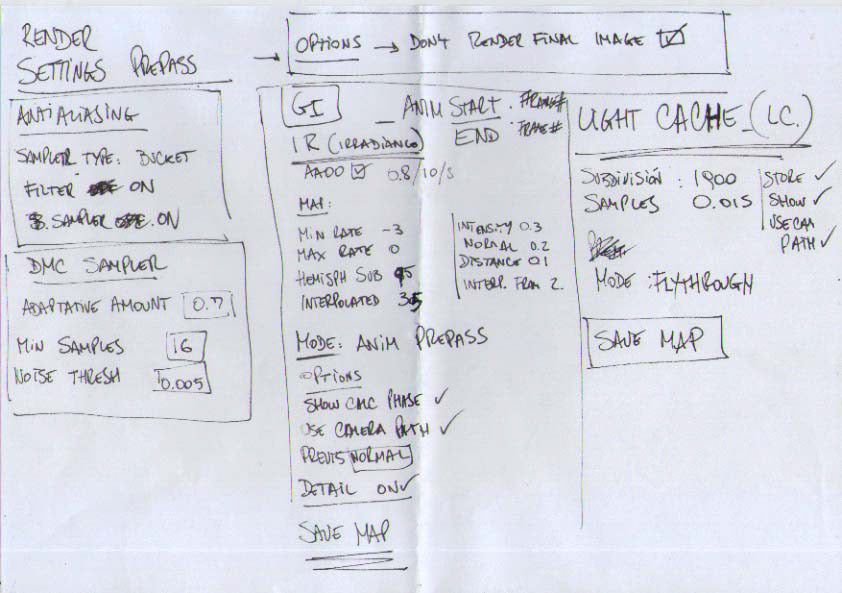 RENDER
SETTINGS PREPASS
→ OPTIONS → DON'T RENDER FINAL IMAGE ☑
ANTIALIASING
SAMPLER TYPE: BUCKET
FILTER ON
SAMPLER ON
DMC SAMPLER
ADAPTATIVE AMOUNT 0.7
MIN SAMPLES 16
NOISE THRESH 0.005
GI
ANIM START . FRAME#
END . FRAME#
IR (IRRADIANCE)
☑ 0.8/10/S
MAP:
MIN RATE -3
MAX RATE 0
HEMISPH SUB
INTERPOLATED
INTENSITY 0.3
NORMAL 0.2
DISTANCE 01
INTERP. FRAM 2.
MODE: ANIM PREPASS
OPTIONS
SHOW CALC PHASE ✓
USE CAMERA PATH ✓
NORMAL
DETAIL ON ✓
SAVE MAP
LIGHT CACHE_(LC.)
SUBDIVISION : 1900
SAMPLES 0.015
STORE ✓
SHOW ✓
USE CAM
PATH ✓
MODE : FLYTHROUGH
SAVE MAP